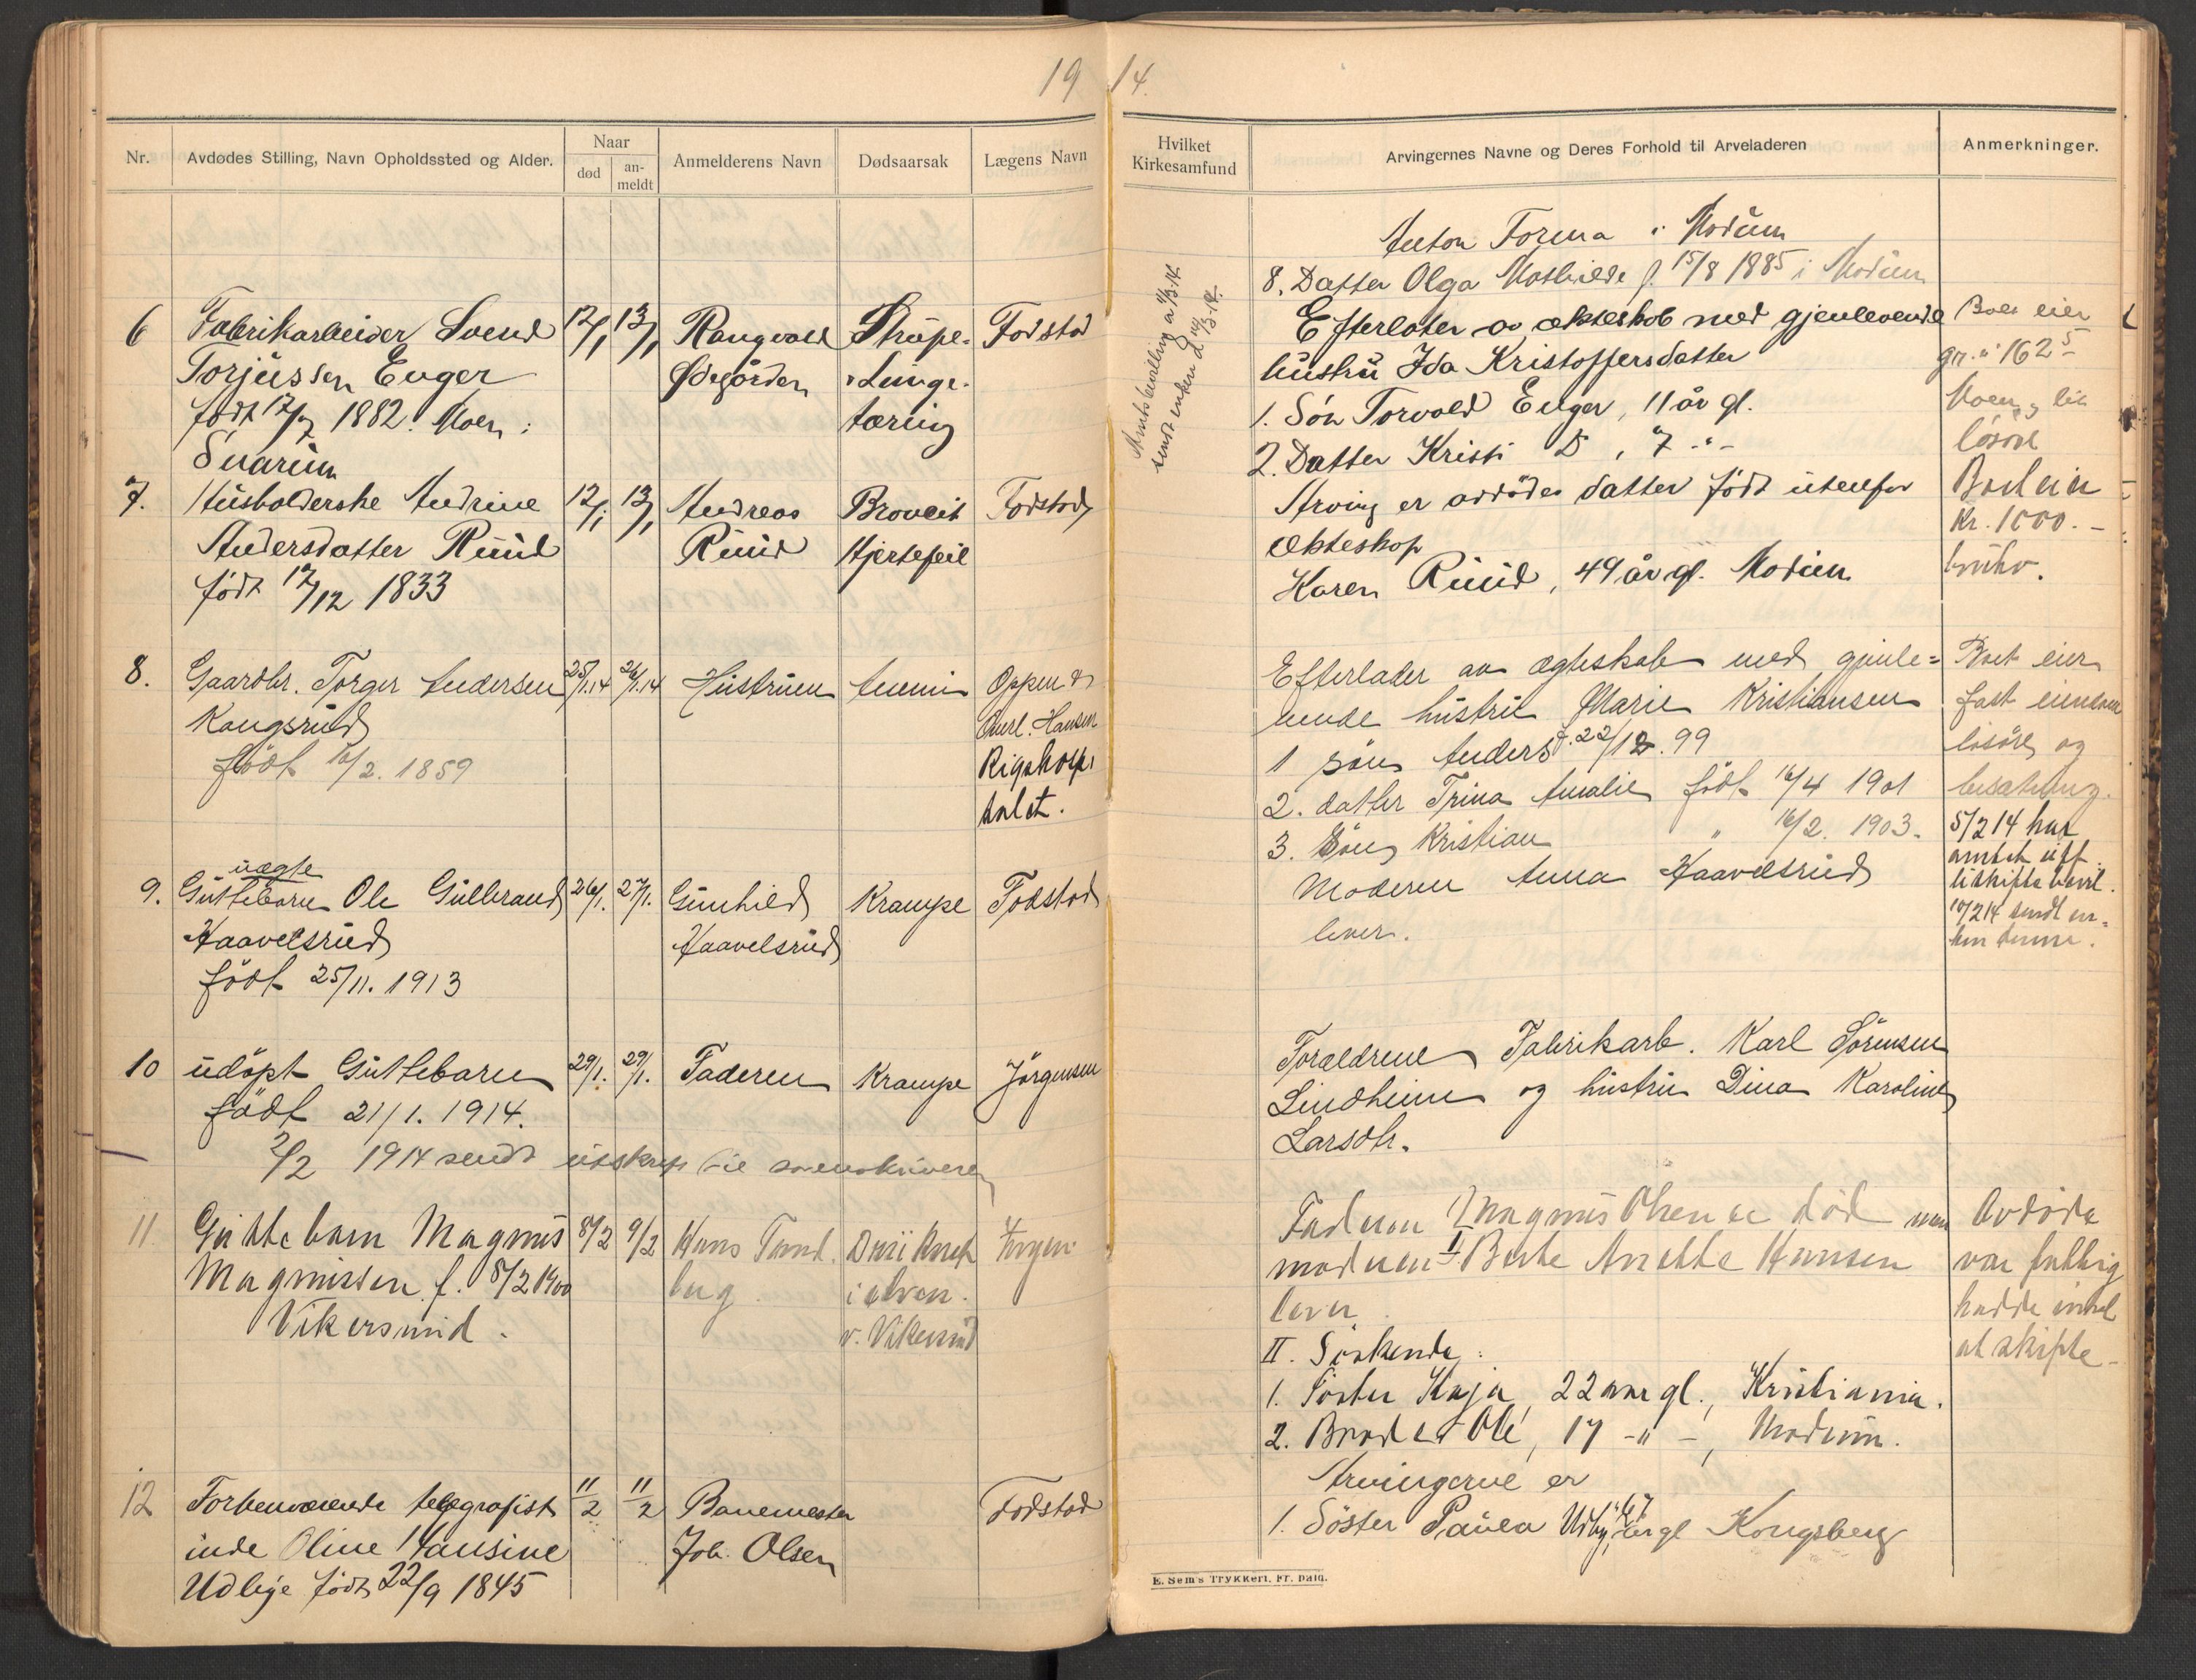 19
Nr.
Avdødes Stilling, Navn Opholdssted og Alder.
Naar
død
an-
meldt
Anmelderens Navn
Dødsaarsak
Lægens Navn
6
Fabrikarbeider Svend
Torjussen Enger
født 17/7 1882. Moen i
Snarum
12/1
13/1
Rangvald
Ødegården
Strupe-
Lunge-
tæring
Fodstad
7.
Husholderske Andrine
Andersdatter Ruud
født 17/12 1833
12/1
13/1
Andreas
Ruud
Hjertefeil
Fodstad
8.
Gaardbr. Torger Andersen
Kongsrud
født 16/2. 1859
25/1.14
26/1.14
Hustruen
Anemi
Oppen &
Hansen
Rigshospi
talet.
9.
uægte
Guttebarn Ole Gulbrand
Haavelsrud
født 25/11. 1913
26/1.
27/1.
Gunhild
Haavelsrud
Krampe
Fodstad
10
udöpt Guttebarn
födt 21/1. 1914.
29/1.
29/1.
Faderen
Krampe
Jörgensen
2/2 1914 sendt utskrift til sorenskriveren
11
Guttebarn Magnus
Magnussen f. 8/2 1900
Vikersund.
8/2
9/2
Hans Tand-
berg
Druknet
i elven
v. Vikersund
Ingen
12
Forhenværende telegrafist
inde Oline Hansine
Udbye født 22/9 1845
11/2
11/2
Banemester
Joh. Olsen
Fodstad
14.
Hvilket
Kirkesamfund
Arvingernes Navne og Deres Forhold til Arveladeren
Anmerkninger.
Amtsbevilling a 11/3.14.
sendt enken d. 14/3.14.
Anton Forma i Modum
8. Datter Olga Mathilde f. 15/8 1885 i Modum
Efterlater av ekteskab med gjenlevende
hustru Ida Kristoffersdatter
1. Sön Torvald Enger, 11 år gl.
2. Datter Kristi D , 7 -"-
Boet eier
Moen og lit
lösöre
Arving er avdödes datter född utenfor
ekteskap
Karen Ruud, 49 år gl. Modum
Kr. 1000.-
Efterlader av ægteskab med gjenle=
vende hustru Marie Kristiansen
1 sön Anders f. 22/12.99
2. datter Trina Amalie födt 16/4 1901
3. Sön Kristian " 16/2. 1903.
Boet eier
fast eiendom
lösöre og
besætning.
5/2 14 har
amtet utf.
10/2 14 sendt en-
ken denne.
Moderen Anna Haavelsrud
lever.
Foraldrene Fabrikarb. Karl Sörensen
Lindheim og hustru Dina Karoline
Larsdtr.
Faderen Magnus Olsen er död men
moderen I Berte Anette Hansen
lever
II. Söskende:
1. Söster Kaja, 22 aar gl., Kristiania.
2. Broder Ole, 17 -"-, Modum.
Avdöde
var fattig
hadde intet
at skifte-
Arvingerne er
1. Söster Paula Udby, 67 år gl Kongsberg
E. Sem's Trykkeri, Fr. hald.